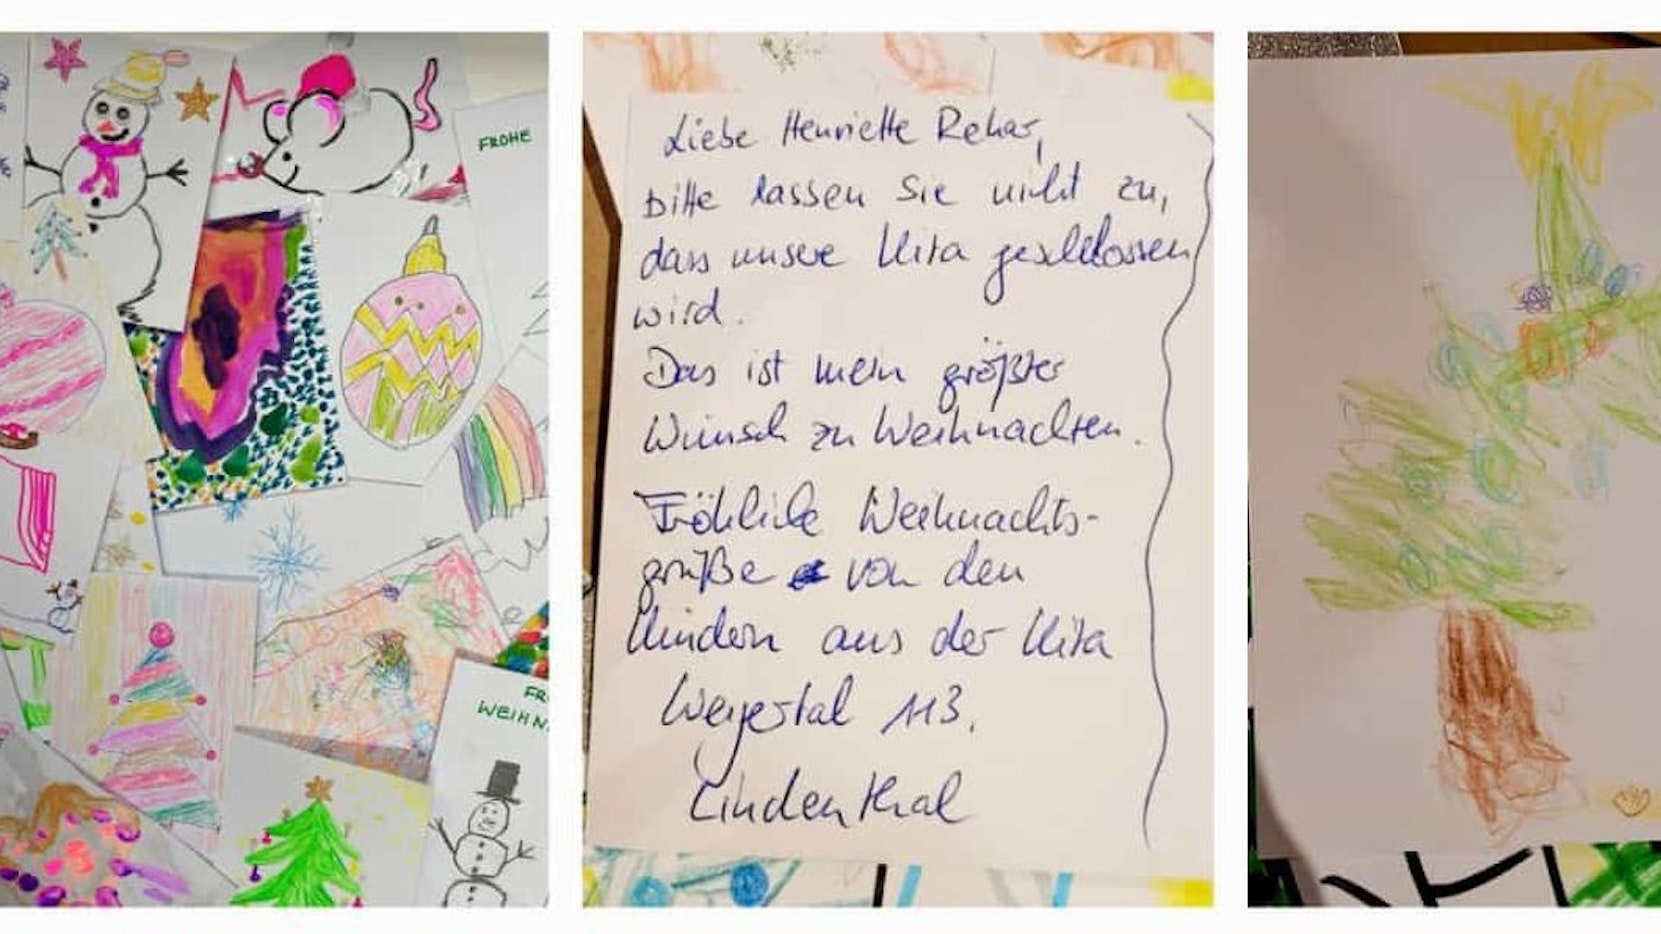 FROHE
FR
WEIHN
Liebe Henriette Reker,
Bitte lassen Sie nicht zu,
dass unsere Kita geschlossen
wird.
Das ist mein größter
Wunsch zu Weihnachten.
Fröhliche Weihnachts-
grüße von den
Kindern aus der Kita
Weyertal 113.
Lindenthal